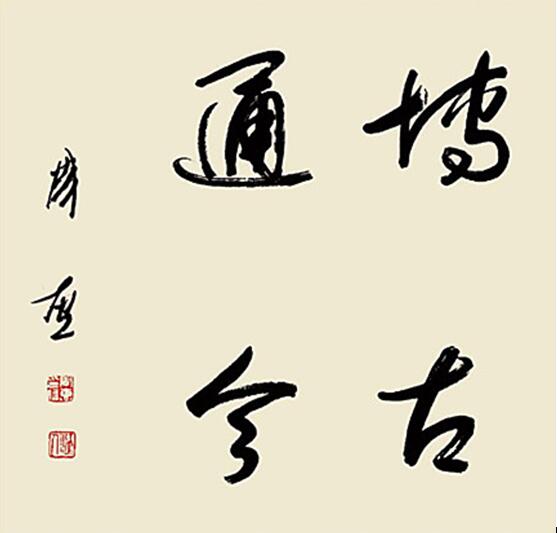 博古
通今